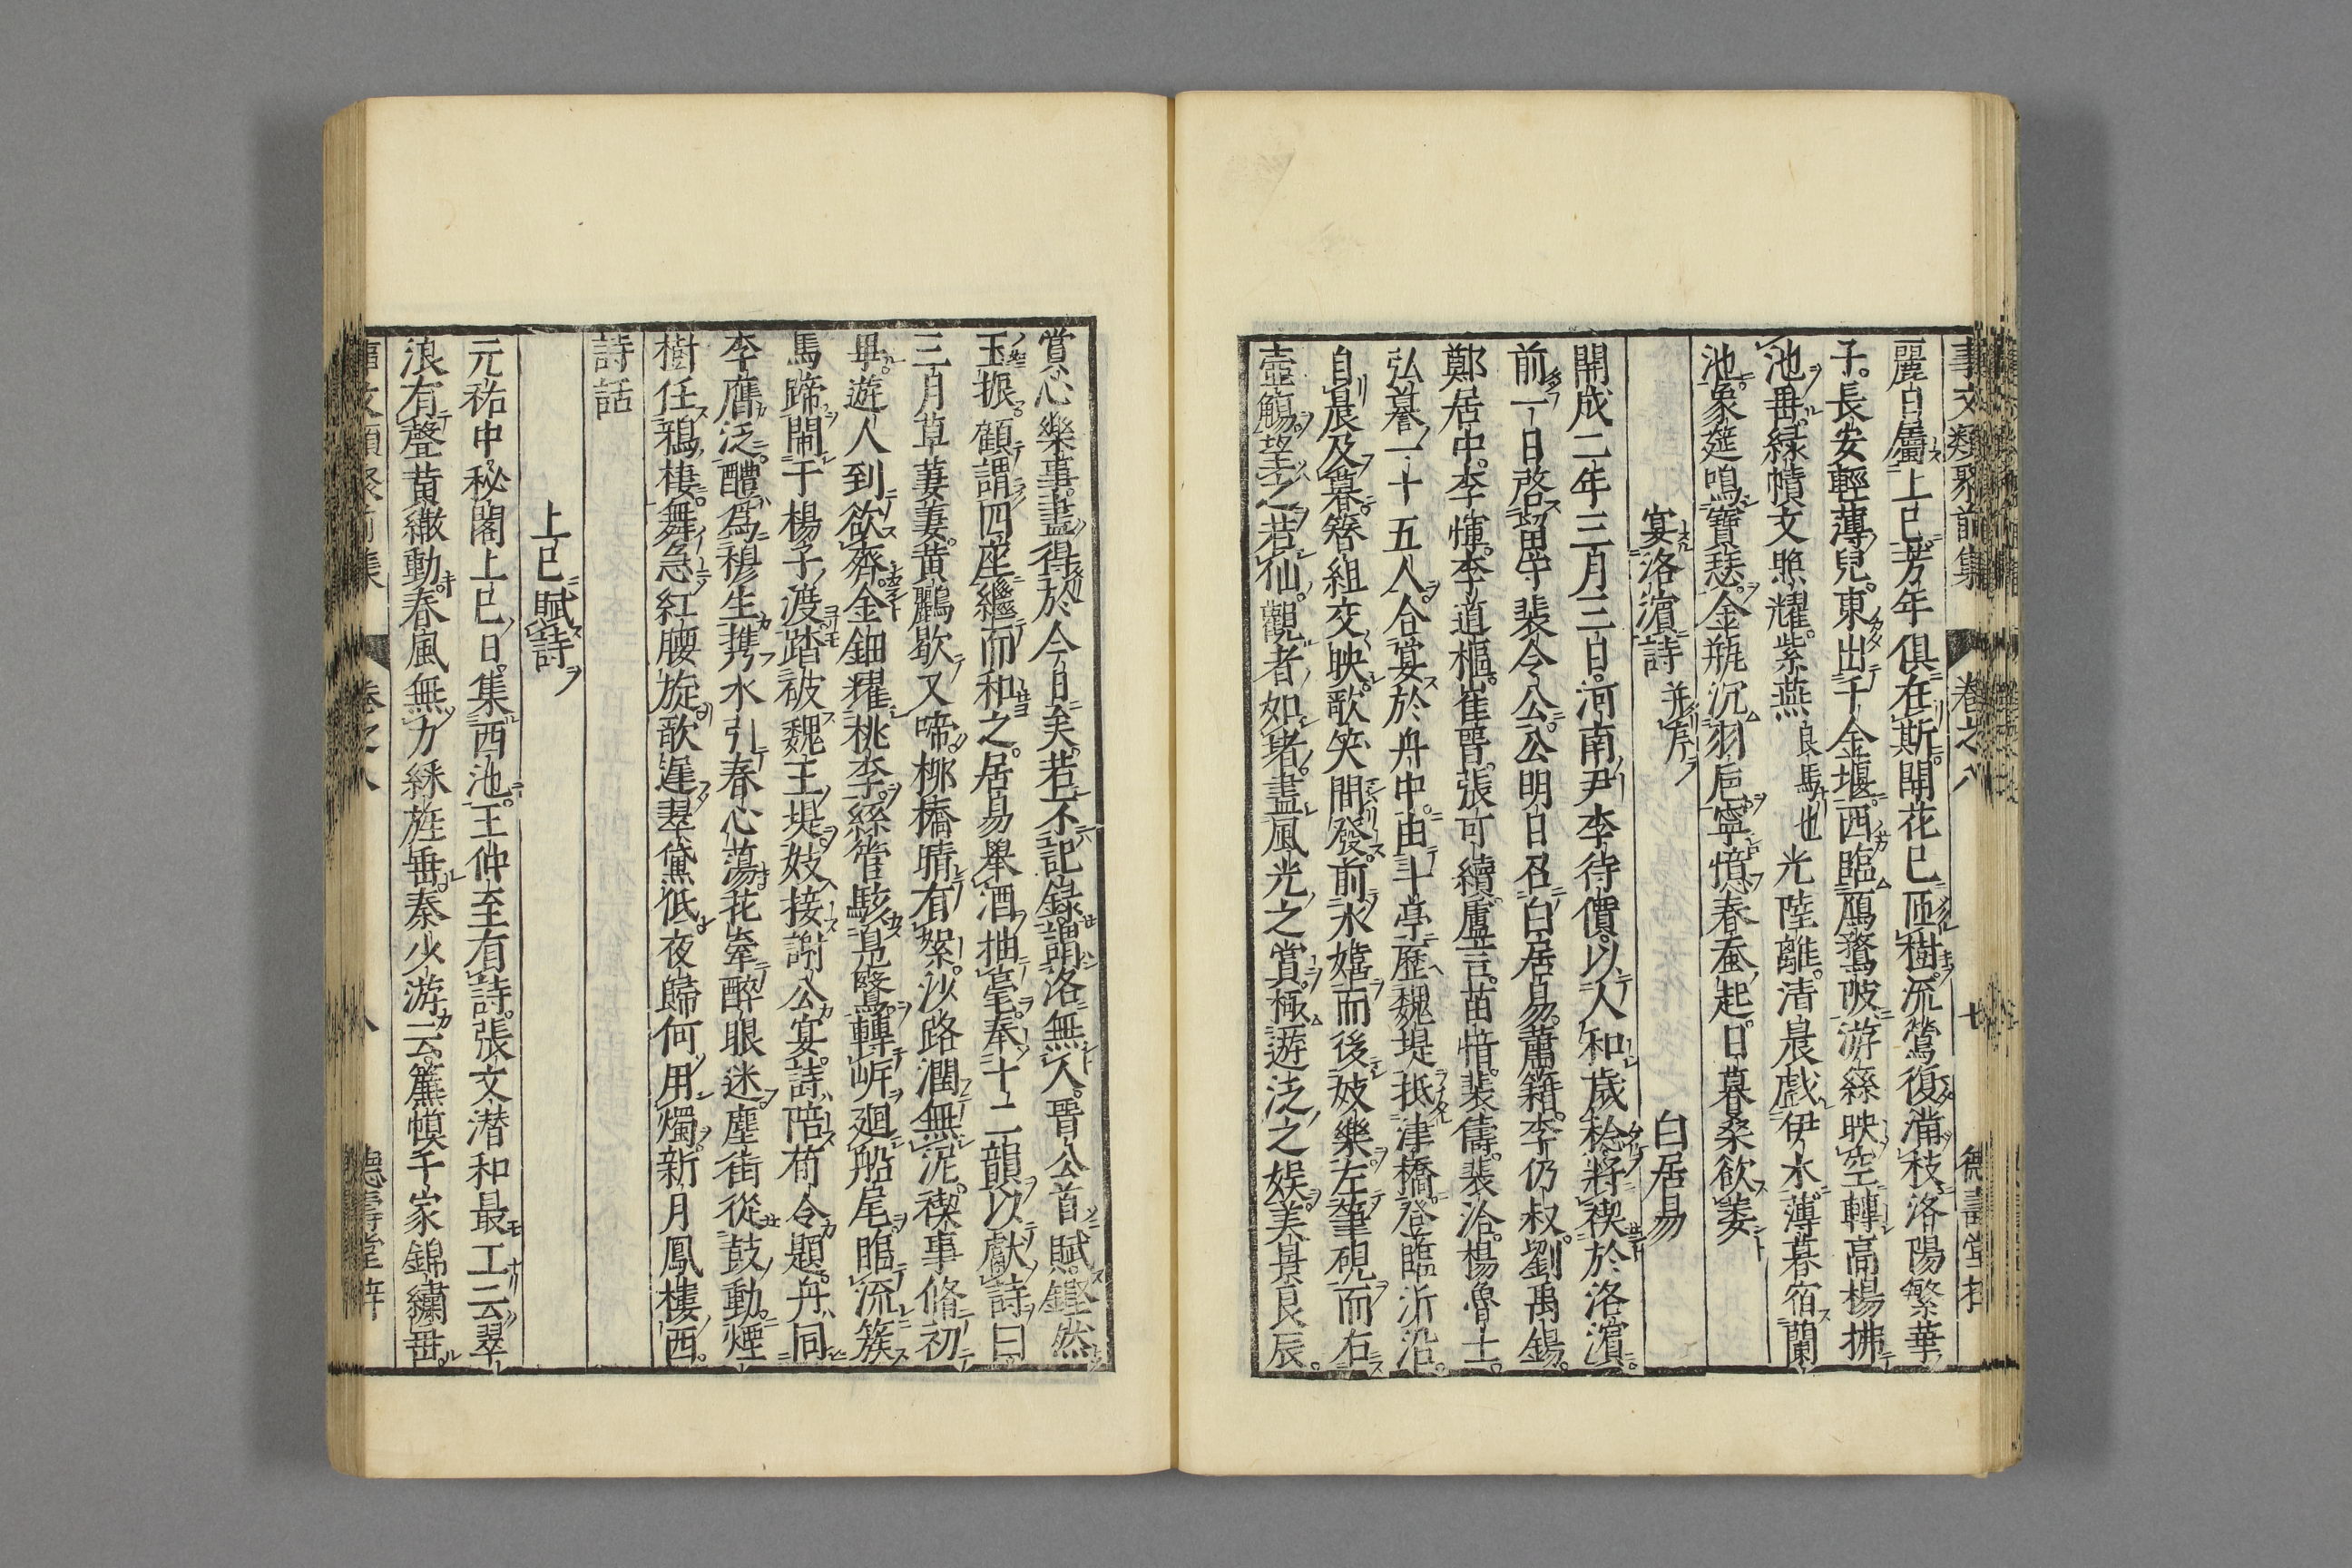 事文類聚前集 卷之八 七
麗日屬上巳芳年俱在斯開花已匝樹流鶯復滿枝洛陽繁華
子長安輕薄兒東出千金堰西臨鴈鶩陂游絲映空轉高楊拂
池垂綠幘文照耀紫燕良馬也光陸離清晨戲伊水薄暮宿蘭
池象筵鳴寶瑟金瓶沉羽巵寧憶春蚕起日暮桑欲萎
宴洛濱詩并序 白居易
開成二年三月三日河南尹李待價以人和歲稔將禊於洛濱
前一日啓留守裴令公公明日召白居易蕭籍李仍叔劉禹錫
鄭居中李惲李道樞崔晋張可續盧言苗愔裴儔裴洽楊魯士
弘謩一十五人合宴於舟中由斗亭歷魏堤抵津橋登臨泝沿
自晨及暮簪組交映歌笑間發前水嬉而後妓樂左筆硯而右
壺觴望之若仙觀者如堵盡風光之賞極遊泛之娱美景良辰
賞心樂事盡得於今日矣若不記錄謂洛無人晋公首賦鏗然
玉振顧謂四座繼而和之居易舉酒抽毫奉十二韻以獻詩曰
三月草萋萋黃鸝歇又啼柳橋晴有絮沙路潤無泥禊事脩初
畢遊人到欲齊金鈿耀桃李絲管駭鳧鷖轉岍廻船尾臨流簇
馬蹄閙于楊子渡踏破魏王堤妓接謝公宴詩陪荀令題舟同
李膺泛醴為穆生携水引春心蕩花牽醉眼迷塵街從鼓動煙
樹任鴉棲舞急紅腰旋歌遲翠黛低夜歸何用燭新月鳳樓西
詩話
上巳賦詩
元祐中秘閣上巳日集西池王仲至有詩張文潜和最工云翠
浪有聲黃繖動春風無力綵旌垂秦少游云簾幙千家錦繡垂
卷之八 八